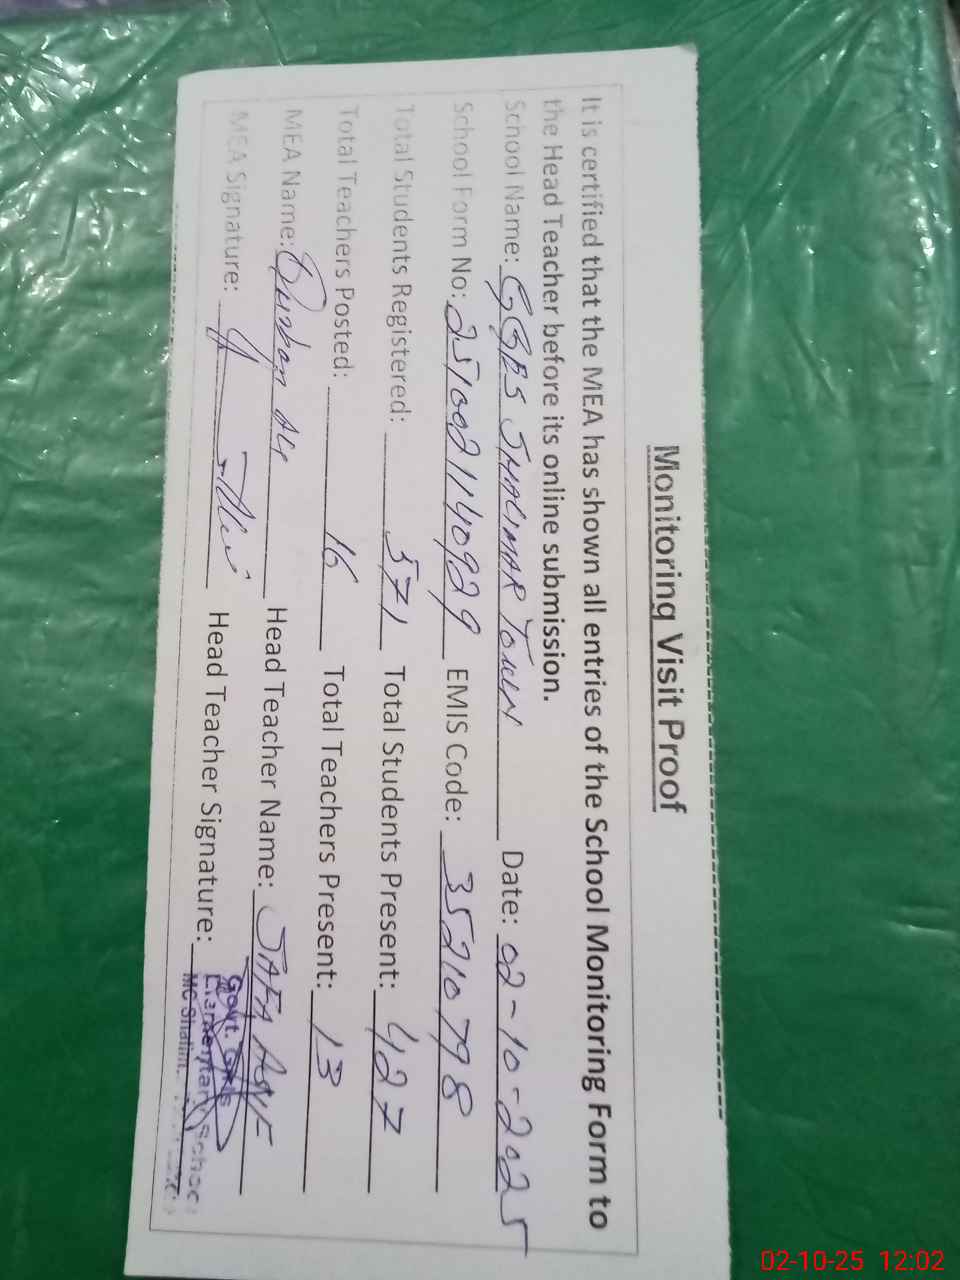 Monitoring Visit Proof
It is certified that the MEA has shown all entries of the School Monitoring Form to
the Head Teacher before its online submission.
School Name: GGES SHALIMAR TOWN Date: 02-10-2025
School Form No: 251002114092 9 EMIS Code: 35210798
Total Students Registered: 571 Total Students Present: 427
Total Teachers Posted: 16 Total Teachers Present: 13
MEA Name: Ali Head Teacher Name:
MEA Signature: Head Teacher Signature:
Govt. Girls
Elementary School
MC Shalim
02-10-25 12:02